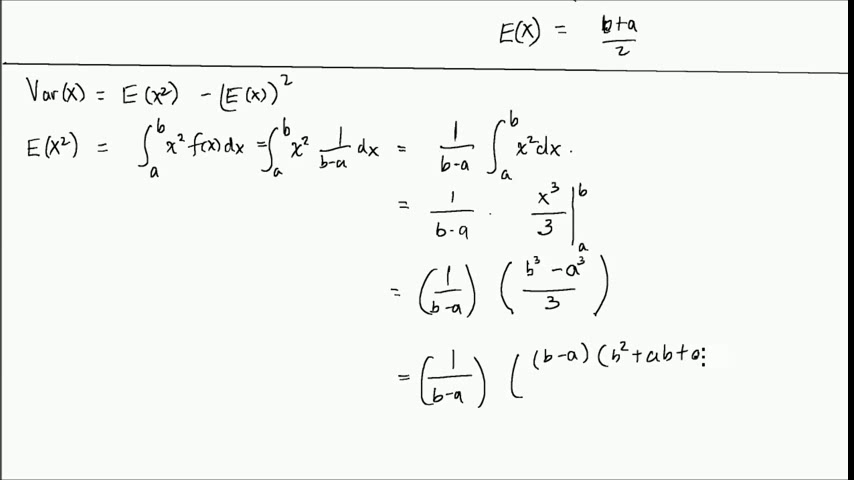 E(X) = b+a/2
Var(X) = E(X²) - (E(X))²
E(X²) = ∫ₐᵇ x² f(x) dx = ∫ₐᵇ x² 1/(b-a) dx = 1/(b-a) ∫ₐᵇ x² dx.
= 1/(b-a) · x³/3 |ₐᵇ
= (1/(b-a)) ((b³ - a³)/3)
= (1/(b-a)) ( (b-a) (b² + ab +